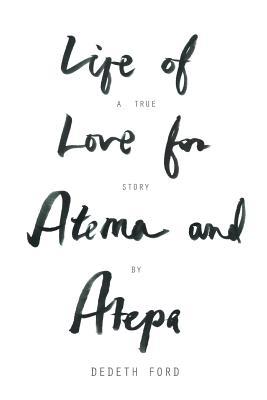 Life of
A TRUE
Love for
STORY
Atema and
BY
Atepa
DEDETH FORD